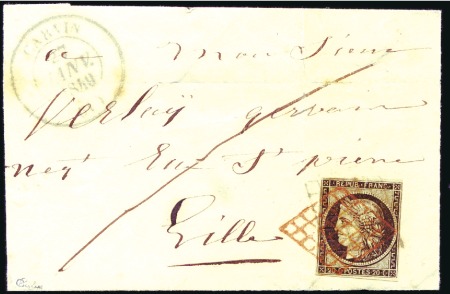 CARVIN
JANV.
1849
a Monsieur
Verley germain
neg.t Rue St pierre
Lille
REPUB. FRANC.
20 C POSTES 20 C